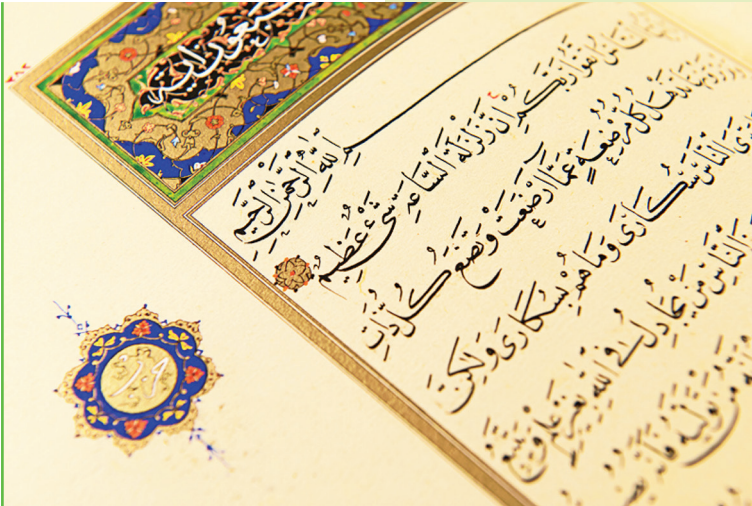 سبعون اية
الله الرحمن الرحيم
النَّاسُ اتَّقُوا رَبَّكُمْ اِنَّ زَلْزَلَةَ السَّاعَةِ شَيْءٌ عَظِيمٌ
تَرَوْنَهَا تَذْهَلُ كُلُّ مُرْضِعَةٍ عَمَّا اَرْضَعَتْ وَتَضَعُ كُلُّ ذَاتِ
وَتَرَى النَّاسَ سُكَارَى وَمَا هُمْ بِسُكَارَى وَلٰكِنَّ
النَّاسِ مَنْ يُجَادِلُ فِي اللّٰهِ بِغَيْرِ عِلْمٍ وَيَتَّبِعُ
مَنْ تَوَلَّيهُ فَاَنَّهُ